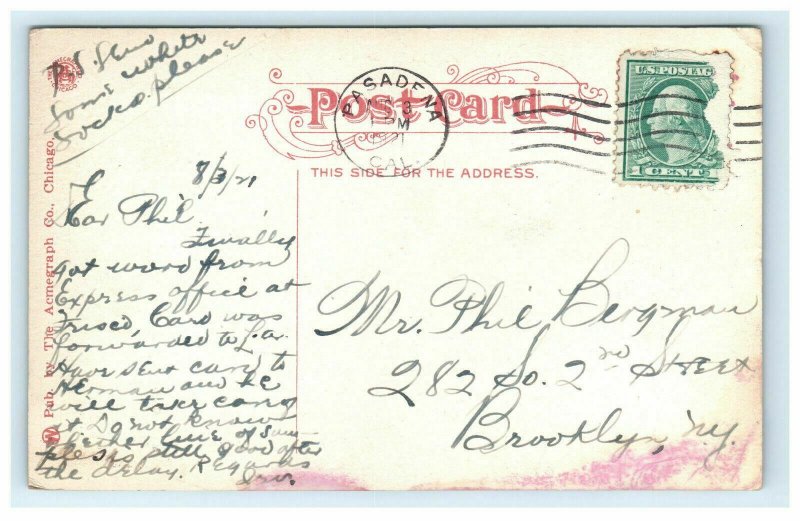 P.S. Send
some white
socks. please
Post Card
PASADENA
PM
CAL.
U.S. POSTAGE
1 CENT
THIS SIDE FOR THE ADDRESS.
Pub. by The Acmegraph Co., Chicago.
8/3/21
Dear Phil
Finally
got word from
Express office at
Frisco, Card was
forwarded to L.A.
Have sent card to
Herman and he
will take care
it Do not know
whether line of sam-
ples is still good after
the delay. Regards
Irv.
Mr. Phil Bergman
282 So. 2nd Street
Brooklyn, N.Y.